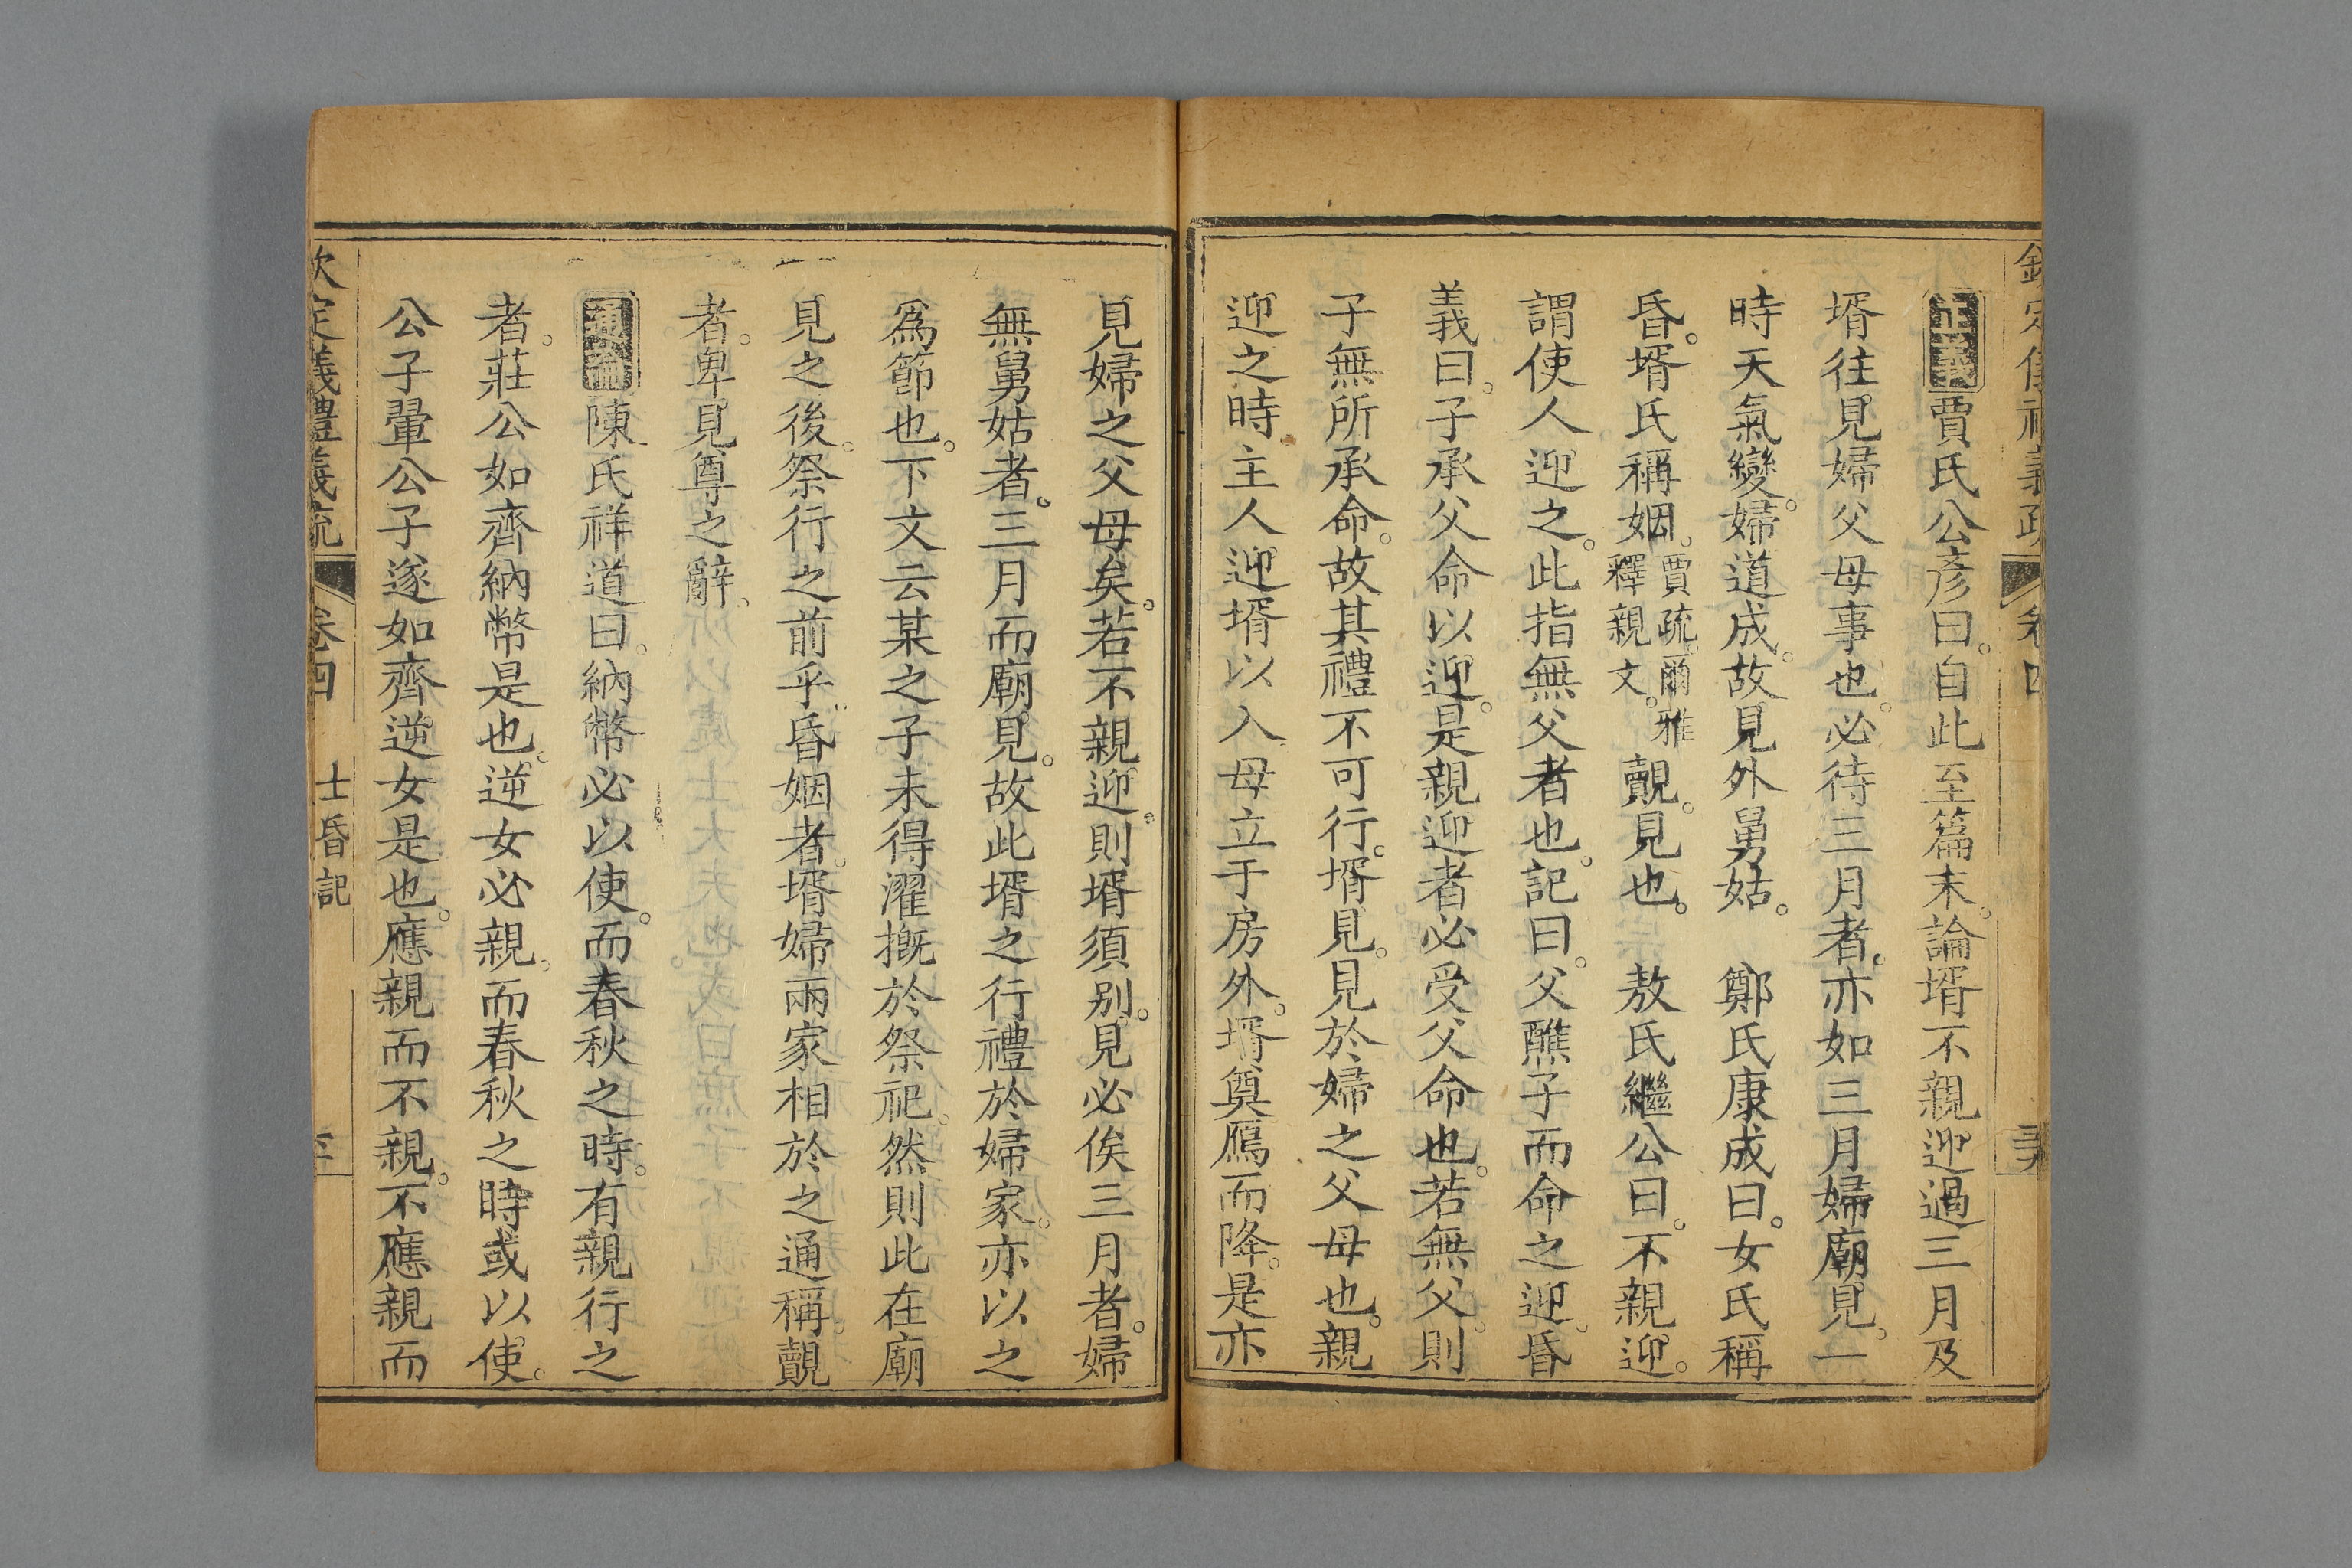 正義賈氏公彥曰。自此至篇末。論壻不親迎過三月及
壻往見婦父母事也。必待三月者。亦如三月婦廟見。一
時天氣變。婦道成。故見外舅姑。 鄭氏康成曰。女氏稱
昏。壻氏稱姻。賈疏。爾雅釋親文。覿。見也。 敖氏繼公曰。不親迎。
謂使人迎之。此指無父者也。記曰。父醮子而命之迎。昏
義曰。子承父命以迎。是親迎者必受父命也。若無父。則
子無所承命。故其禮不可行。壻見。見於婦之父母也。親
迎之時。主人迎壻以入。母立于房外。壻奠鴈而降。是亦
見婦之父母矣。若不親迎。則壻須別見。必俟三月者。婦
無舅姑者。三月而廟見。故此壻之行禮於婦家。亦以之
爲節也。下文云某之子未得濯摡於祭祀。然則此在廟
見之後。祭行之前乎。昏姻者。壻婦兩家相於之通稱。覿
者。卑見尊之辭。
通論陳氏祥道曰。納幣必以使。而春秋之時。有親行之
者。莊公如齊納幣是也。逆女必親。而春秋之時或以使。
公子翬公子遂如齊逆女是也。應親而不親。不應親而
欽定儀禮義疏
卷四
士昏記